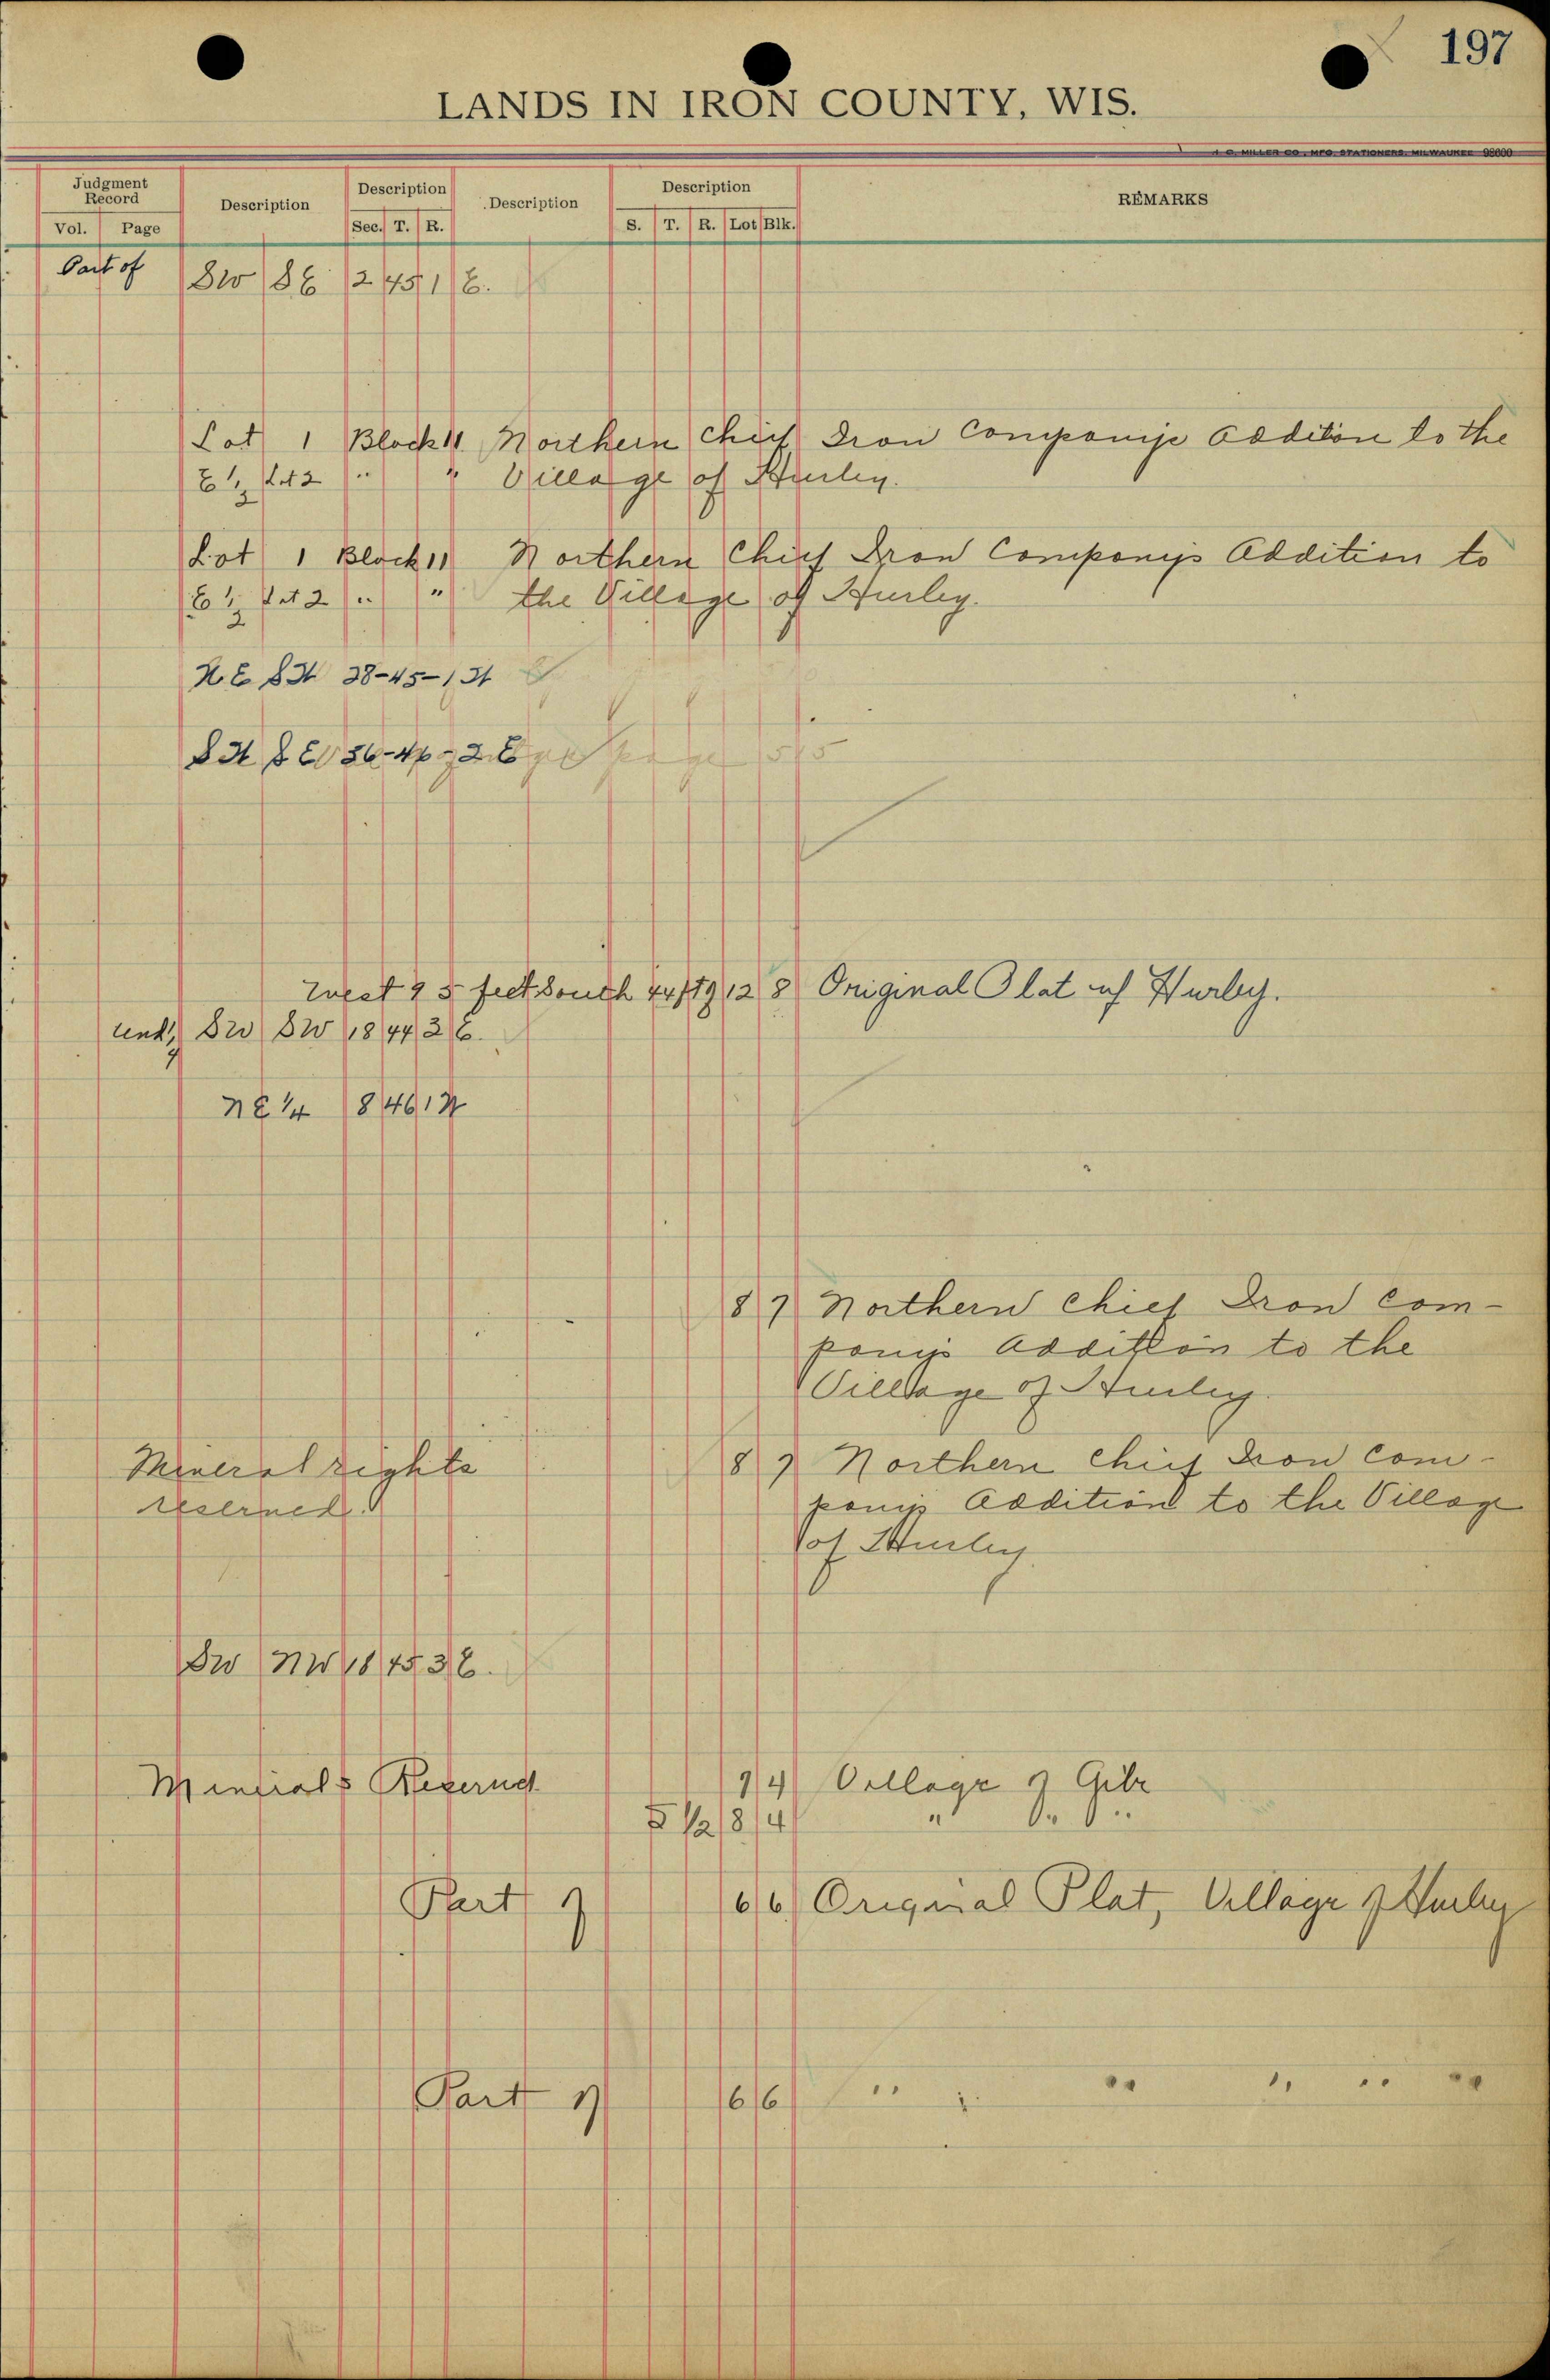 197
LANDS IN IRON COUNTY, WIS.
J. C. MILLER CO., MFG STATIONERS, MILWAUKEE 98600
Judgment Record
Vol. Page
Description
Description
Sec. T. R.
Description
Description
S. T. R. Lot Blk.
REMARKS
Part of SW SE 12 45 1 E.
Lot 1 Block 11 Northern Chief Iron Company's Addition to the
E 1/2 Lot 2 " " Village of Hurley.
Lot 1 Block 11 Northern Chief Iron Company's Addition to
E 1/2 Lot 2 " " the Village of Hurley.
N E S W 28-45-1 W
S W S E 36-46-2 E page 515
West 95 feet South 44 ft 9 12 8 Original Plat of Hurley.
und 1/9 SW SW 18 44 3 E.
NE 1/4 8 46 1 W
8 7 Northern Chief Iron Com-
pany's Addition to the
Village of Hurley.
Mineral rights 8 7 Northern Chief Iron Com-
reserved. pany's Addition to the Village
of Hurley.
SW NW 18 45 3 E.
Minerals Reserved 7 4 Village of Gile
S 1/2 8 4 " " "
Part of 6 6 Original Plat, Village of Hurley
Part of 6 6 " " " " " "